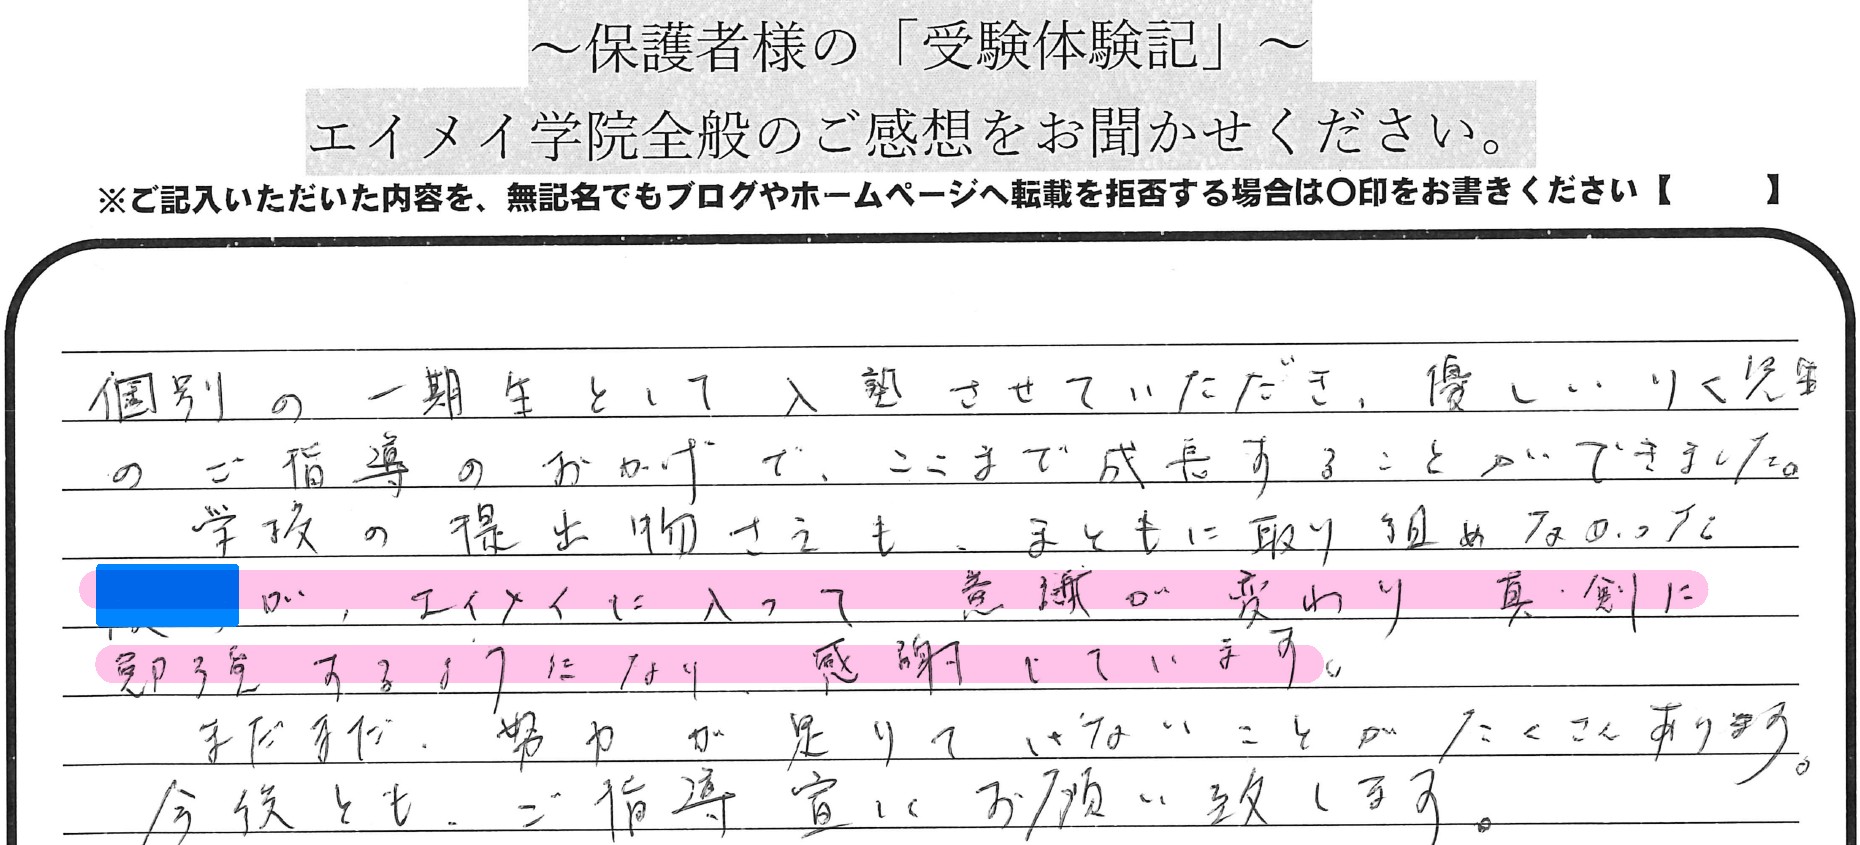 ～保護者様の「受験体験記」～
エイメイ学院全般のご感想をお聞かせください。
※ご記入いただいた内容を、無記名でもブログやホームページへ転載を拒否する場合は〇印をお書きください【　　　】
個別の一期生として入塾させていただき、優しいりく先生
のご指導のおかげで、ここまで成長することができました。
学校の提出物さえも、まともに取り組めなかった
が、エイメイに入って意識が変わり真剣に
勉強するようになり、感謝しています。
まだまだ、努力が足りていないことがたくさんあります。
今後とも、ご指導宜しくお願い致します。